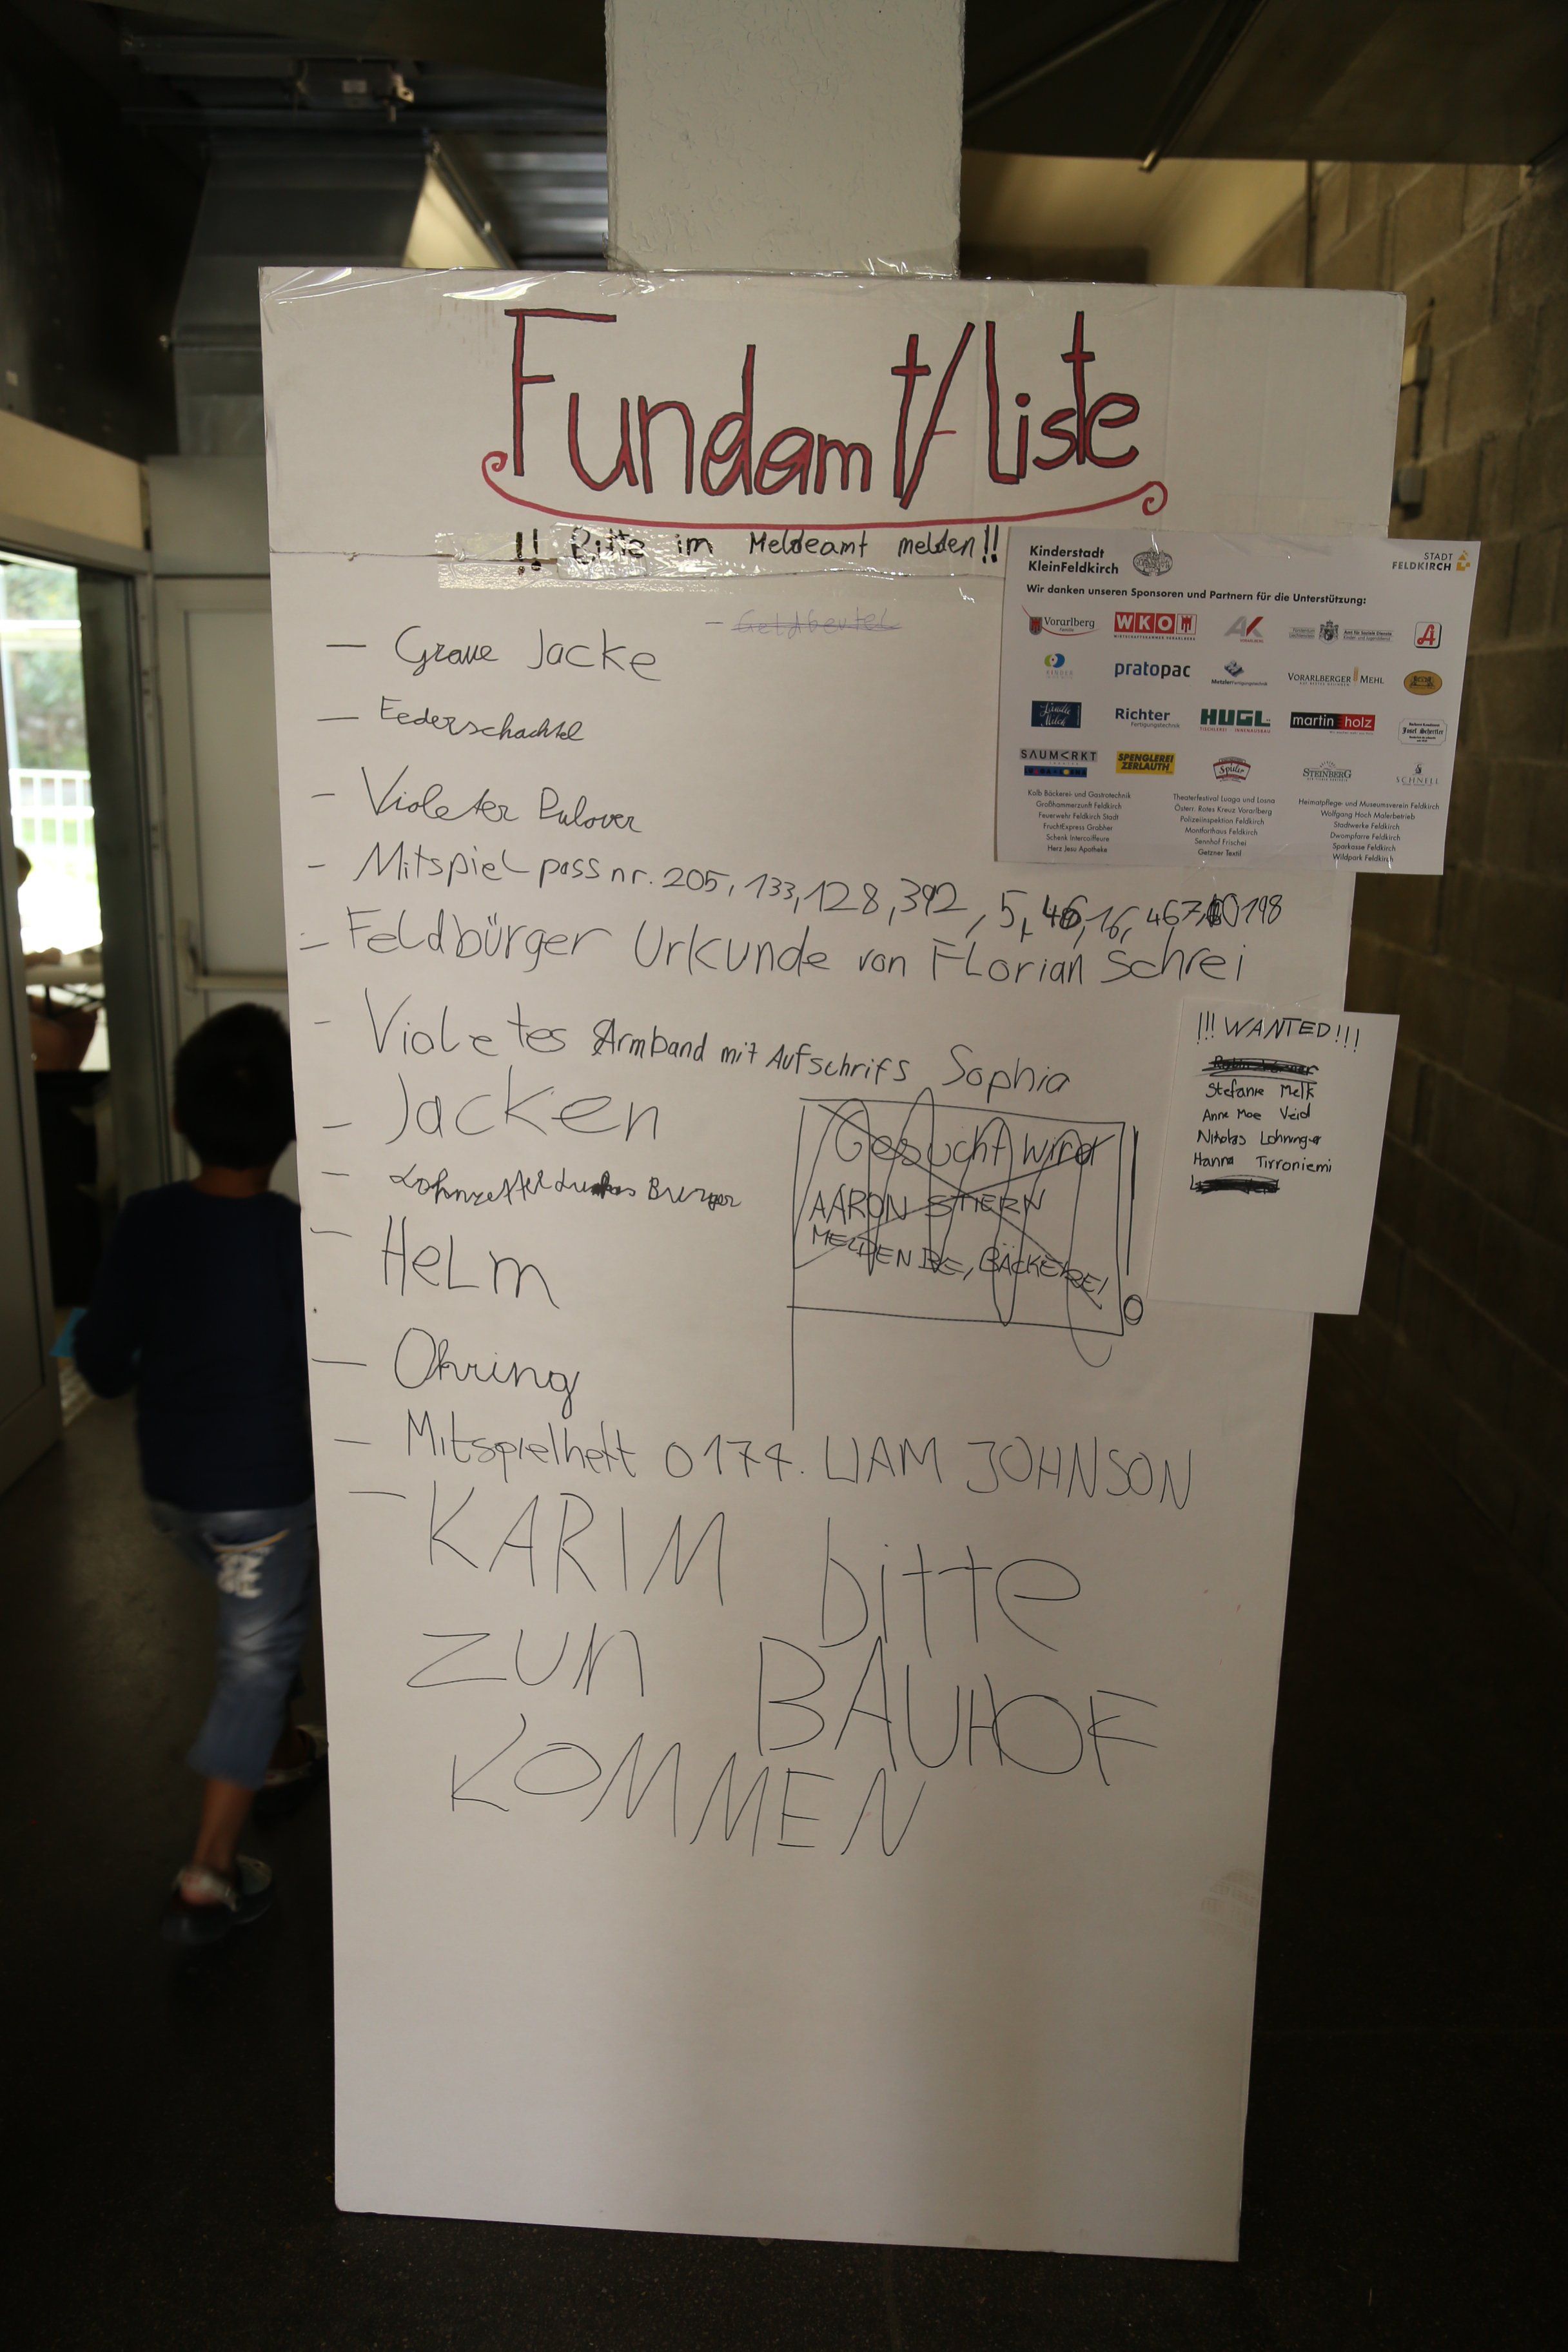 Fundamt/liste
!! Bitte im Meldeamt melden!!
- Geldbeutel
- Graue Jacke
- Federschachtel
- Violeter Pulover
- Mitspielpass nr. 205, 133, 128, 392, 5, 46, 16, 467, 198
- Feldbürger Urkunde von Florian Schrei
- Violetes Armband mit Aufschrifs Sophia
- Jacken
- Lohnzettel Burger
- HeLm
- Ohring
- Mitspielheft 0174. LIAM JOHNSON
- KARIM bitte
zun BAUHOF
KOMMEN
Gesucht wird
AARON STIERN
MELDEN BÄCKEREI
Kinderstadt
KleinFeldkirch
STADT
FELDKIRCH
Wir danken unseren Sponsoren und Partnern für die Unterstützung:
Vorarlberg
WKO
WIRTSCHAFTSKAMMER VORARLBERG
AK
Amt für Soziale Dienste
A
KINDER
pratopac
Metzler Fertigungstechnik
VORARLBERGER MEHL
Ländle Milch
Richter
Fertigungstechnik
HUGL
TISCHLEREI INNENAUSBAU
martin holz
Josef Schertler
SAUM<RKT
SPENGLEREI
ZERLAUTH
Spieler
STEINBERG
SCHNELL
Kolb Bäckerei- und Gastrotechnik
Großhammerzunft Feldkirch
Feuerwehr Feldkirch Stadt
FruchtExpress Grabher
Schenk Intercoiffeure
Herz Jesu Apotheke
Theaterfestival Luaga und Losna
Österr. Rotes Kreuz Vorarlberg
Polizeiinspektion Feldkirch
Montforthaus Feldkirch
Sennhof Frischei
Getzner Textil
Heimatpflege- und Museumsverein Feldkirch
Wolfgang Hoch Malerbetrieb
Stadtwerke Feldkirch
Dompfarre Feldkirch
Sparkasse Feldkirch
Wildpark Feldkirch
!!! WANTED!!!
Stefanie Melk
Anne Mae Veid
Nikolas Lohninger
Hanna Tirroniemi